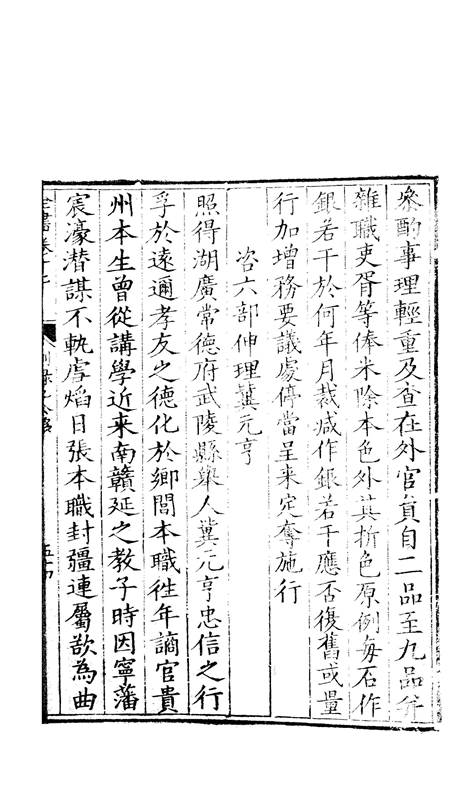 參酌事理輕重及查在外官員自二品至九品并
雜職吏胥等俸米除本色外其折色原例每石作
銀若干於何年月裁減作銀若干應否復舊或量
行加增務要議處停當呈来定奪施行
咨六部伸理冀元亨
照得湖廣常德府武陵縣舉人冀元亨忠信之行
孚於遠邇孝友之德化於鄉閭本職徃年謫官貴
州本生曾從講學近来南贛延之教子時因寧藩
宸濠潜謀不軌虐焰日張本職封疆連屬欲為曲